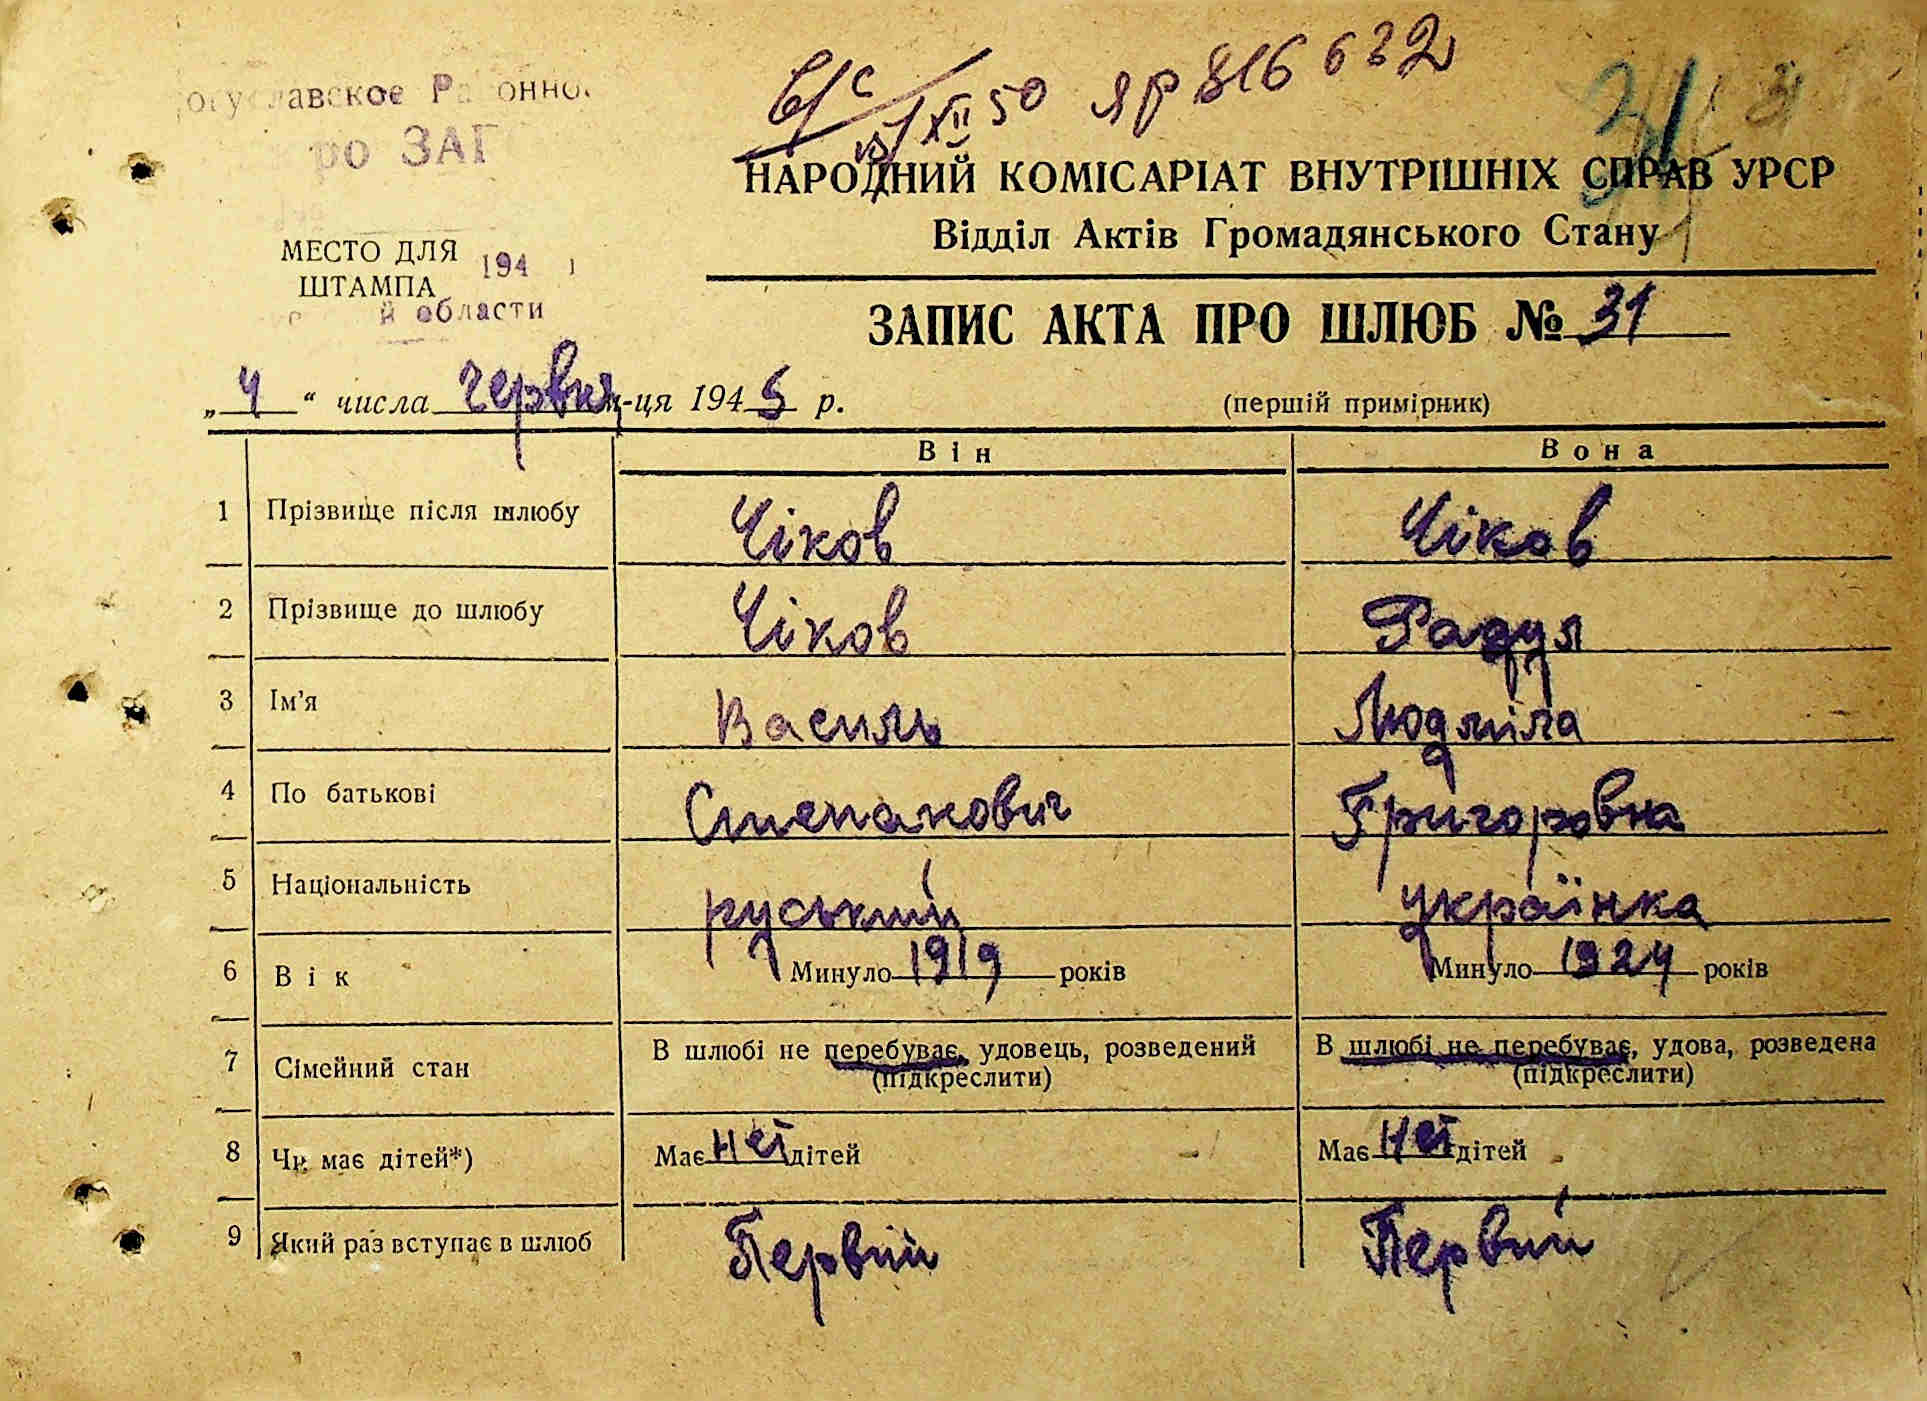 в/с
XII 50 ЯР 816632
31
НАРОДНИЙ КОМІСАРІАТ ВНУТРІШНІХ СПРАВ УРСР
Відділ Актів Громадянського Стану
МЕСТО ДЛЯ
ШТАМПА
194
й области
ЗАПИС АКТА ПРО ШЛЮБ № 31
„ 4 “ числа червня-ця 1945 р.
(першій примірник)
Він Вона
1 Прізвище після шлюбу Чіков Чіков
2 Прізвище до шлюбу Чіков Радул
3 Ім'я Василь Людміла
4 По батькові Степанович Григоровна
5 Національність руський українка
6 Вік Минуло 1919 років Минуло 1924 років
7 Сімейний стан В шлюбі не перебуває, удовець, розведений В шлюбі не перебуває, удова, розведена
(підкреслити) (підкреслити)
8 Чи має дітей*) Має нет дітей Має нет дітей
9 Який раз вступає в шлюб Первий Первий